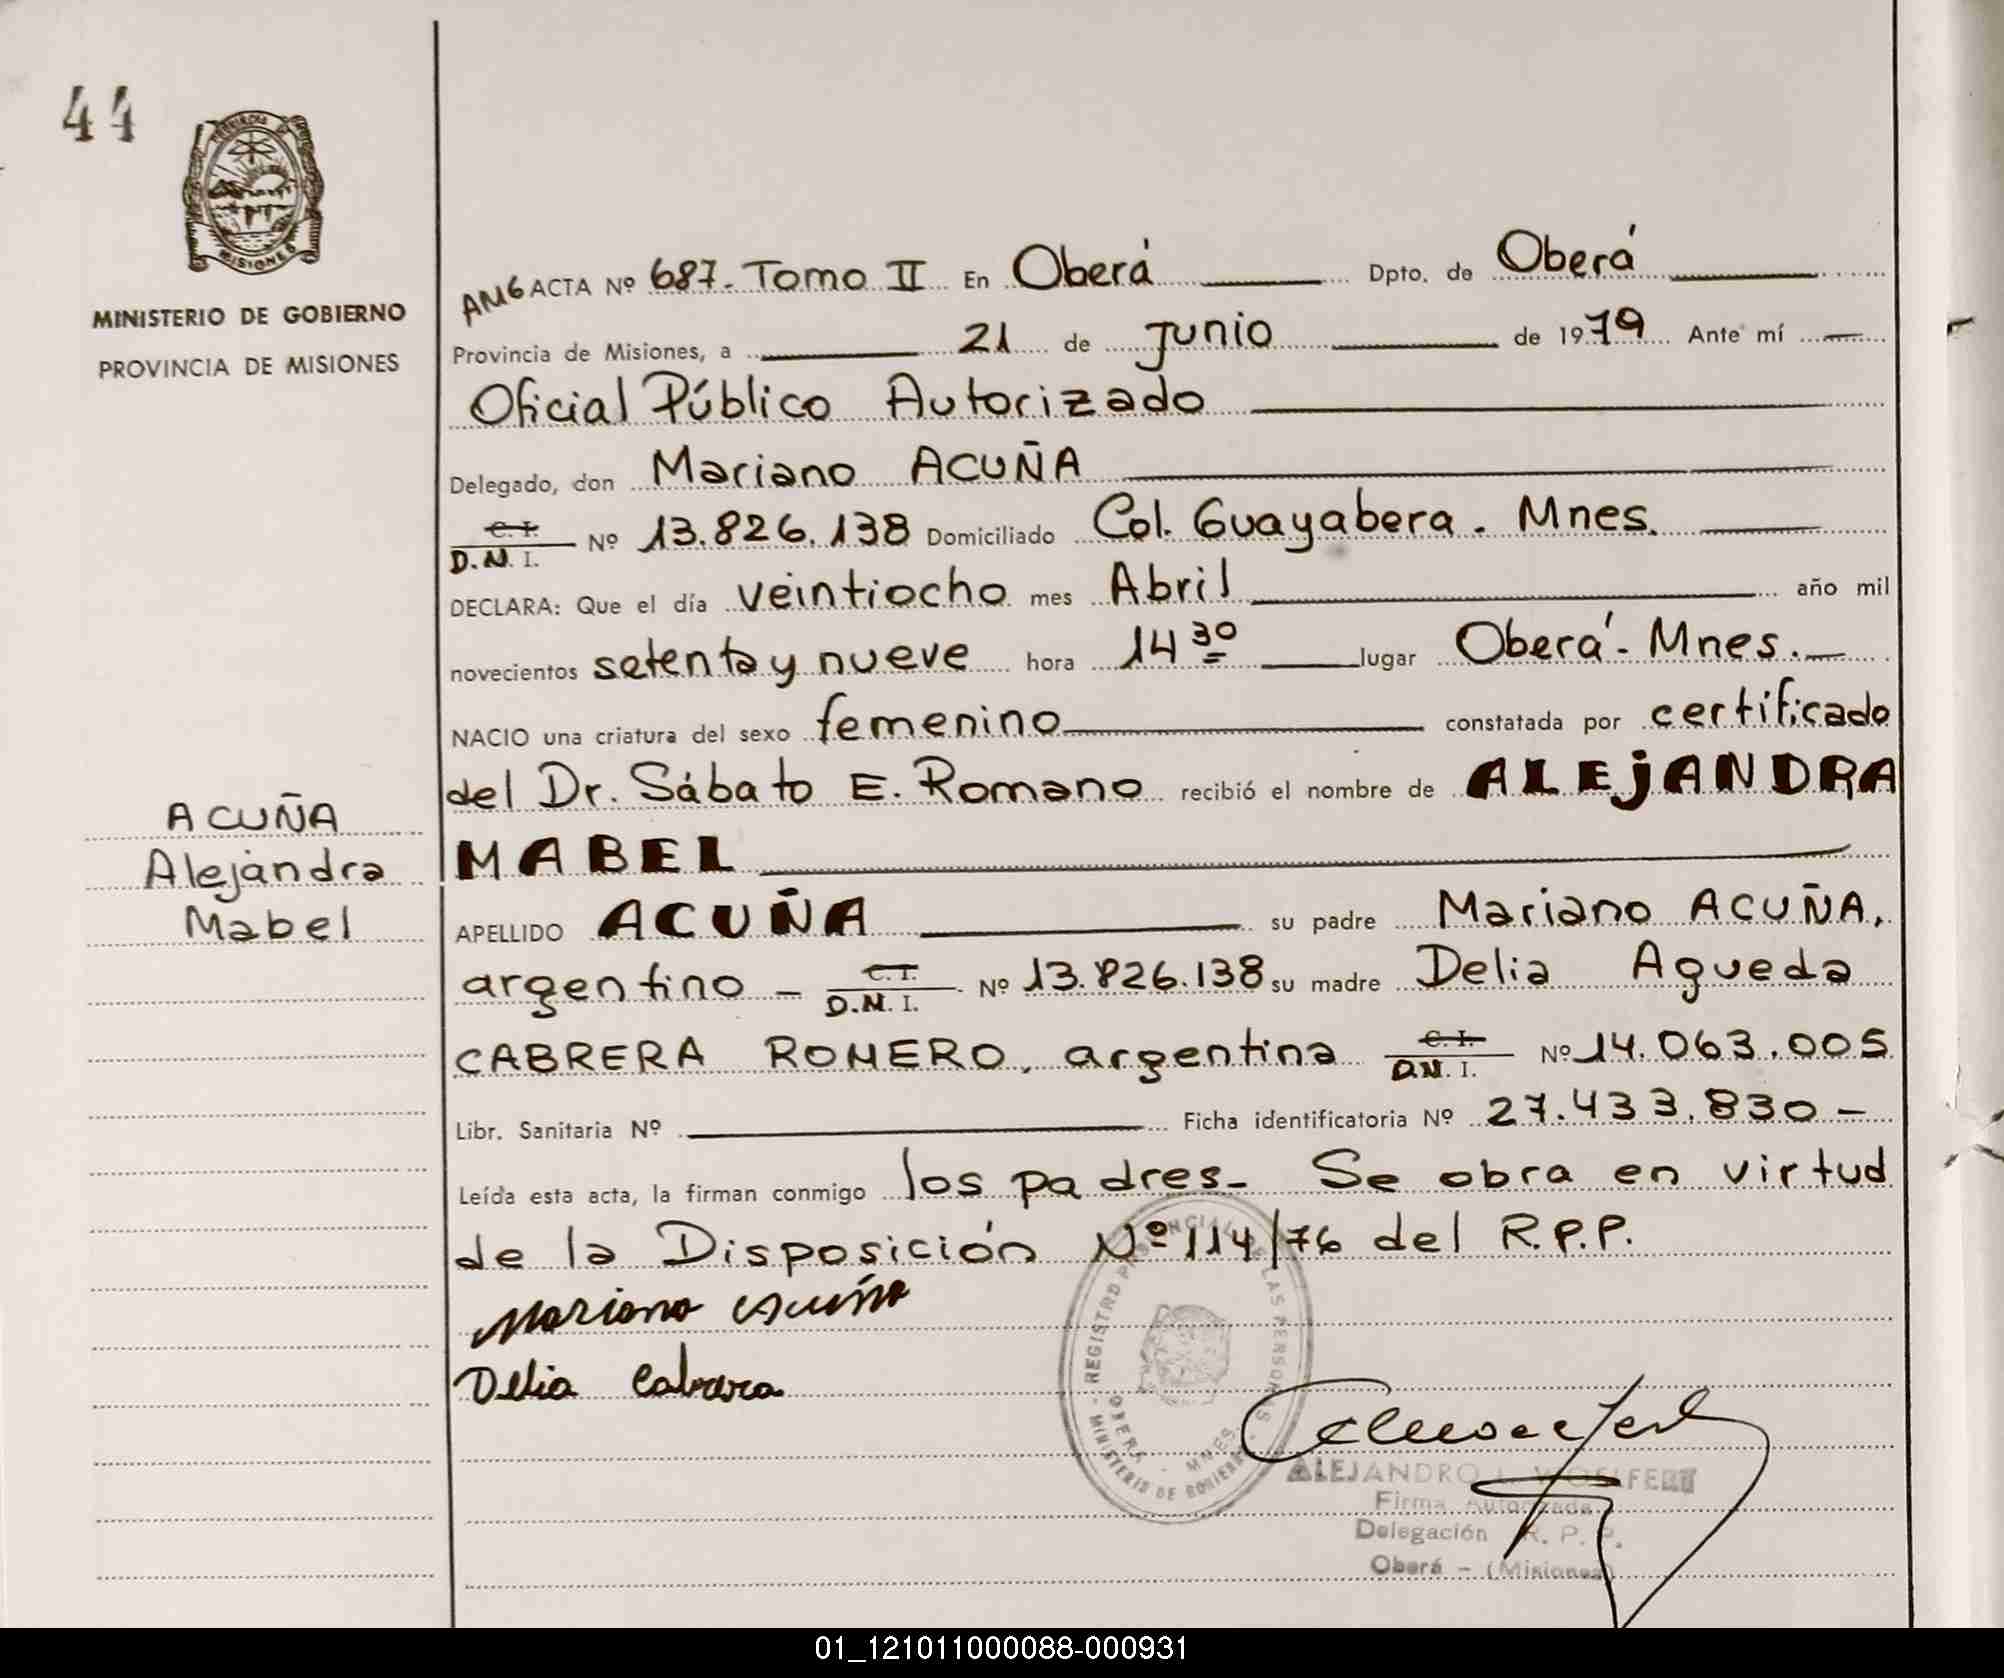 44
PROVINCIA DE
MISIONES
MINISTERIO DE GOBIERNO
PROVINCIA DE MISIONES
ACUÑA
Alejandra
Mabel
ACTA Nº 687. Tomo II En Oberá Dpto. de Oberá
Provincia de Misiones, a 21 de Junio de 1979 Ante mí
Oficial Público Autorizado
Delegado, don Mariano ACUÑA
C. I.
D.N.I. Nº 13.826.138 Domiciliado Col. Guayabera. Mnes.
DECLARA: Que el día veintiocho mes Abril año mil
novecientos setenta y nueve hora 14 30 lugar Oberá - Mnes.
NACIO una criatura del sexo femenino constatada por certificado
del Dr. Sábato E. Romano recibió el nombre de ALEJANDRA
MABEL
APELLIDO ACUÑA su padre Mariano ACUÑA,
argentino - C. I. D.N.I. Nº 13.826.138 su madre Delia Agueda
CABRERA ROMERO, argentina C. I. D.N.I. Nº 14.063.005
Libr. Sanitaria Nº Ficha identificatoria Nº 27.433.830 -
Leída esta acta, la firman conmigo los padres - Se obra en virtud
de la Disposición Nº 114/76 del R.P.P.
Mariano Acuña
Delia Cabrera
REGISTRO PROVINCIAL DE LAS PERSONAS - MINISTERIO DE GOBIERNO -
OBERA - MNES
ALEJANDRO L. WOELFERT
Firma Autorizada
Delegación R. P. P.
Oberá - (Misiones)
01_121011000088-000931